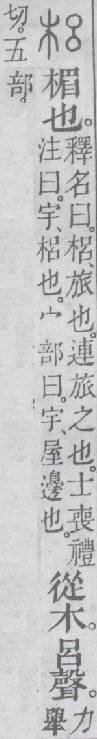 梠楣也。釋名曰。梠、旅也。連旅之也。士喪禮注曰。宇、梠也。宀部曰。宇、屋邊也。從木。呂聲。力舉
切。五部。